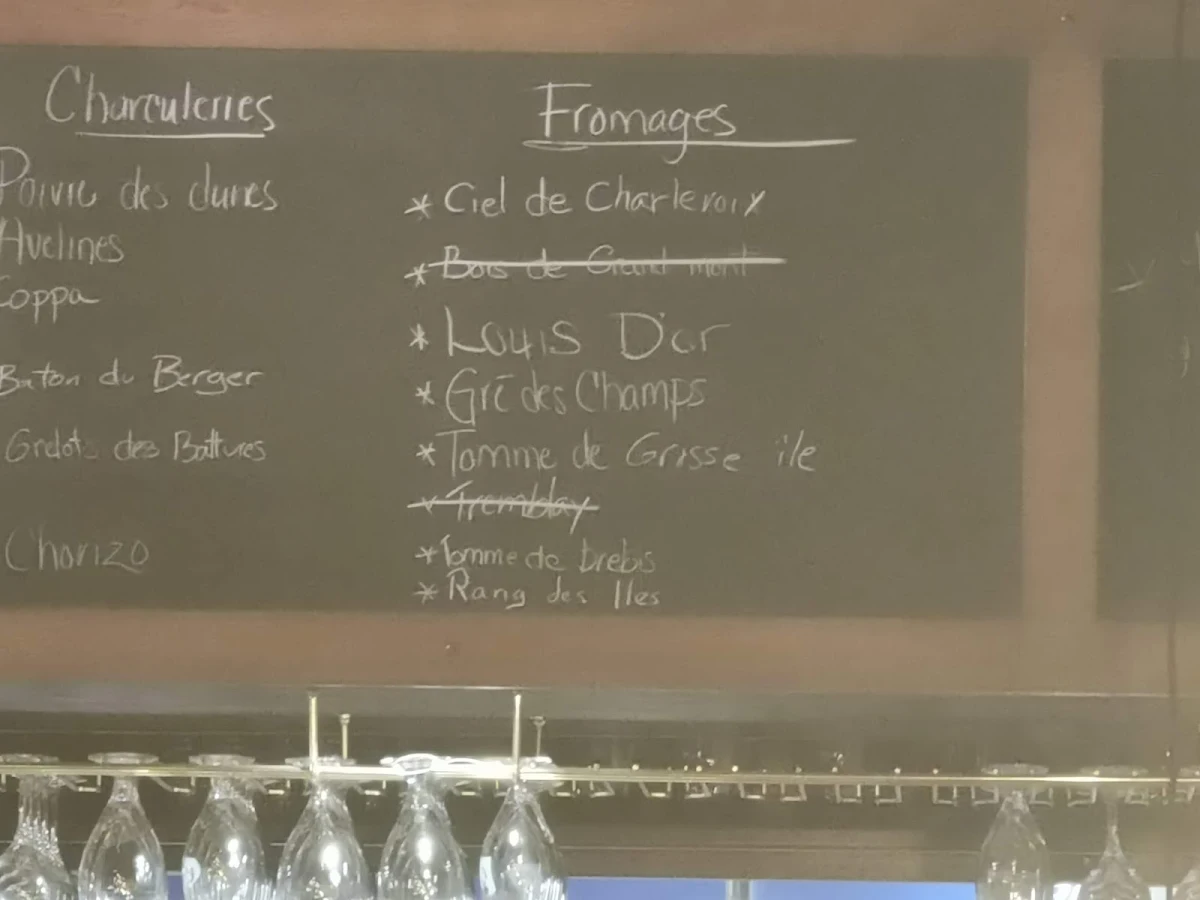 Charcuteries
Poivre des dunes
Avelines
Coppa
Baton du Berger
Grelots des Battures
Chorizo
Fromages
* Ciel de Charlevoix
* Bois de Grand mont
* Louis D'or
* Gré des Champs
* Tomme de Grosse île
* Tremblay
* Tomme de brebis
* Rang des Iles